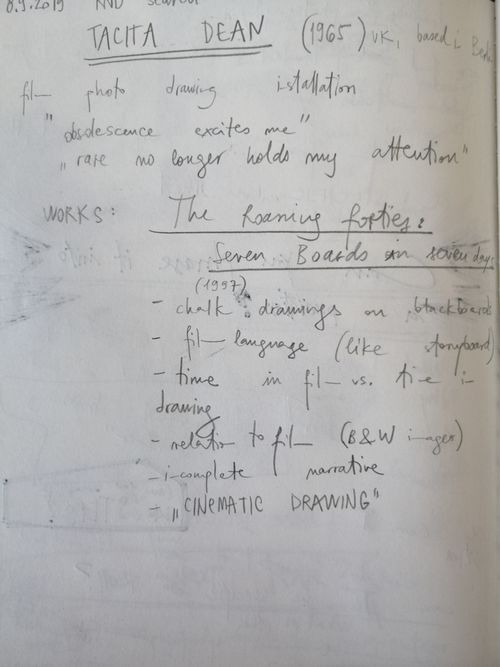 8.9.2019
TACITA DEAN (1965) UK, based i
film photo drawing istallation
"obsolescence excites me"
„rare no longer holds my attention"
WORKS: The Roaring forties:
Seven Boards in seven days
(1997)
- chalk drawings on blackboards
- film language (like storyboard)
- time in film vs. time in
drawing
- relation to film (B&W images)
- incomplete narrative
- „CINEMATIC DRAWING"